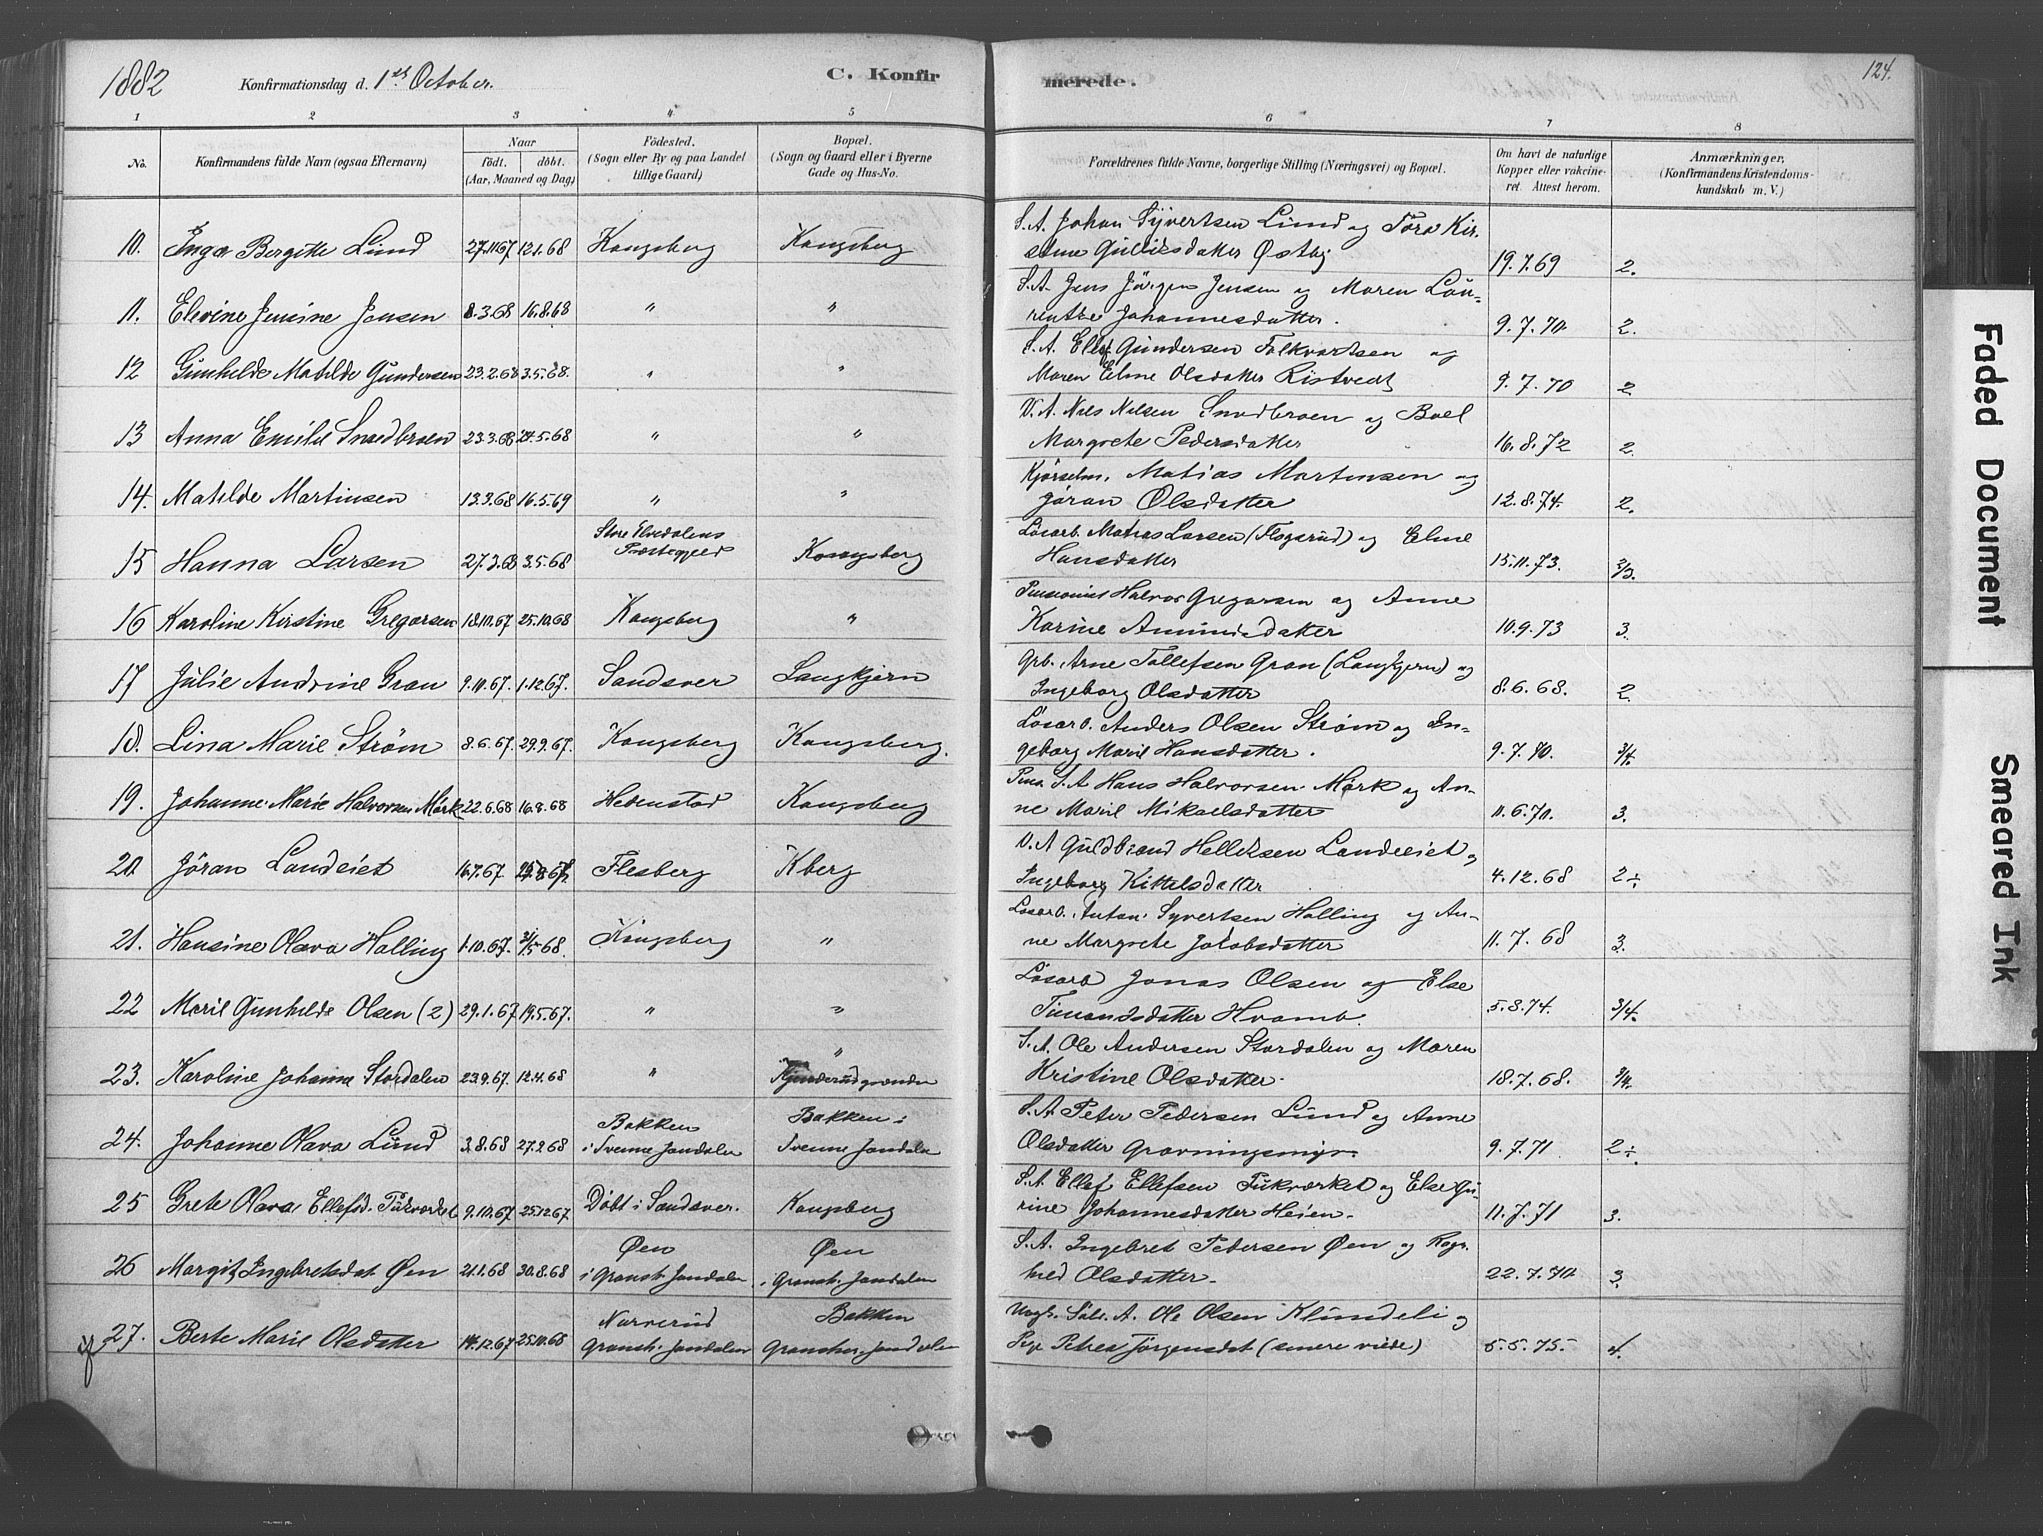 1882
Konfirmationsdag d. 1ste October.
C. Konfir
merede.
124.
1 2 3 4 5 6 7 8
No.
Konfirmandens fulde Navn (ogsaa Efternavn)
Naar
födt. döbt.
(Aar, Maaned og Dag)
Födested.
(Sogn eller By og paa Landet
tillige Gaard)
Bopæl.
(Sogn og Gaard eller i Byerne
Gade og Hus-No.
Forældrenes fulde Navne, borgerlige Stilling (Næringsvei) og Bopæl.
Om havt de naturlige
Kopper eller vakcine-
ret. Attest herom.
Anmærkninger,
(Konfirmandens Kristendoms-
kundskab m. V.)
10. Inga Bergitte Lund 27.11.67 12.1.68 Kongsberg Kongsberg
S.A. Johan Syvertsen Lund og Tora Kir-
stine Gulliksdatter Østby 19.7.69 2.
11. Elevine Jensine Jensen 8.3.68 16.8.68 " "
S.A. Jens Jörgen Jensen og Maren Lau-
rentze Johannesdatter. 9.7.70 2.
12 Gunhilde Matilde Gundersen 23.2.68 3.5.68. " "
S.A. Elef Gundersen Folkvartsen og
Maren Eline Olsdatter Ristvedt 9.7.70 2
13 Anna Emilie Snedbroen 23.3.68 24.5.68 " "
V.A. Nils Nilsen Snedbroen og Boel
Margrete Pedersdatter 16.8.72 2.
14. Matilde Martinsen 13.3.68 16.5.69 " "
Kjörselm. Matias Martinsen og
Jøran Olsdatter 12.8.74. 2.
15 Hanna Larsen 27.3.68 3.5.68 Store Elvedalens
Præstegjeld Kongsberg
Lösarb. Matias Larsen (Flogsrud) og Eline
Hansdatter 15.11.73. 2/3.
16 Karoline Kirstine Gregersen 18.10.67 25.10.68 Kongsberg "
Pensionist Halvor Gregersen og Anne
Karine Amundsdatter 10.9.73 3.
17 Julie Andrine Gran 9.10.67. 1.12.67. Sandsver Langkjern
Grb. Arne Tollefsen Gran (Langkjern) og
Ingeborg Olsdatter 8.6.68. 2.
18. Lina Marie Strøm 8.6.67. 29.9.67. Kongsberg Kongsberg.
Lösarb. Anders Olsen Strøm og In-
geborg Marie Hansdatter. 9.7.70. 3/4.
19. Johanne Marie Halvorsen Mørk 22.6.68 16.8.68 Hedenstad Kongsberg
Pens. S.A Hans Halvorsen Mørk og An-
ne Marie Mikaelsdatter 11.6.70. 3.
20. Jøran Landeiet 16.7.67 Flesberg Kberg
V.A Guldbrand Helleksen Landeiet og
Ingeborg Kittelsdatter 4.12.68 2÷
21. Hansine Olava Halling 1.10.67. 31/5.68. Kongsberg "
Losarb. Anton Syvertsen Halling og An-
ne Margrete Jakobsdatter 11.7.68 3.
22 Marie Gunhilde Olsen (2) 29.1.67 19.5.67. " "
Lösarb Jonas Olsen og Else
Timansdatter Hvamb. 5.8.74. 3/4.
23. Karoline Johanne Stordalen 23.9.67. 12.4.68 " "
Kjunderudgrænden
S.A. Ole Andersen Stordalen og Maren
Kristine Olsdatter. 18.7.68. 3/4.
24. Johanne Olava Lund 3.8.68 27.9.68 Bakken
i Svenne Jondalen Bakken i
Svenne Jondalen
S.A Peter Pedersen Lund og Anne
Olsdatter Gravningsmyr. 9.7.71 2÷.
25 Grete Olava Ellefsd. Tukværket 9.10.67 25.12.67 Døbt i Sandsver. Kongsberg
S.A Ellef Ellefsen Tukværket og Else Gu-
rine Johannesdatter Heien. 11.7.71 3.
26 Margit Ingebretsdat Øen 21.1.68 30.8.68 Øen
i Gransh. Jondalen Øen
i Gransh. Jondalen
S.A. Ingebret Pedersen Øen og Ragn-
hild Olsdatter. 22.7.70 3.
27. Berte Marie Olsdatter 14.12.67 25.10.68 Narverud
Gransh. Jondalen Bakken
Gransher. Jondalen
Ungk. Sölv. A. Ole Olsen Klundeli og
Pige Petrea Jörgensdat (senere viede) 5.5.75. 4.
Faded Document
Smeared Ink